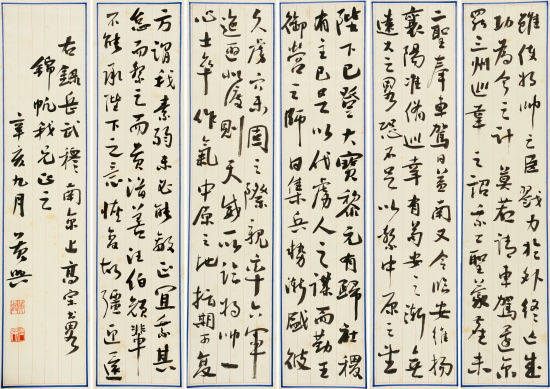 雖使將帥之臣戮力於外終亡成
功為今之計莫若請車駕還京
罷三州巡幸之詔乘二聖蒙塵未
二聖奉車駕日益南又令長安維揚
襄陽准備巡幸有苟安之漸無
遠大之畧恐不足以繫中原之望
陛下已登大寶黎元有歸社稷
有主已足以伐虜人之謀而勤王
御營之師日集兵勢漸盛彼
久虜穴未固之際親率六軍
迤邐北渡則天威所臨將帥一
心士卒作氣中原之地指期可復
方謂我素弱未必能敵正宜乘其
怠而擊之而黃潛善汪伯顏輩
不能承陛下之意恢復故疆迎還
右錄岳武穆南京上高宗書畧
錦帆我兄正之
辛亥九月 黃興